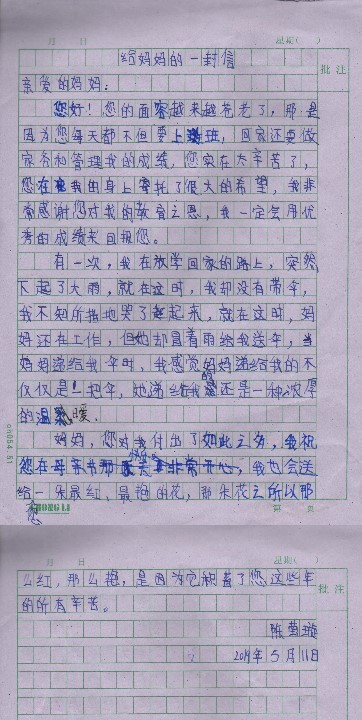 月 日 星期( )
给妈妈的一封信
批注
亲爱的妈妈：
您好！您的面容越来越苍老了，那是
因为您每天都不但要上班，回家还要做
家务和管理我的成绩，您实在太辛苦了，
您在我的身上寄托了很大的希望，我非
常感谢您对我的教育之恩，我一定会用优
秀的成绩来回报您。
有一次，我在放学回家的路上，突然
下起了大雨，就在这时，我却没有带伞，
我不知所措地哭了起来，就在这时，妈
妈还在工作，但她却冒着雨给我送伞，当
妈妈递给我伞时，我感觉妈妈递给我的不
仅仅是一把伞，她递给我的还是一种浓厚
的温暖。
妈妈，您对我付出了如此之多，我祝
您在母亲节那天非常开心，我也会送
给您一朵最红、最艳的花，那朵花之所以那
HONGLI
第 页
ch854-51
月 日 星期( )
批注
么红，那么艳，是因为它积蓄了您这些年
的所有辛苦。
陈莹璇
2019年5月11日